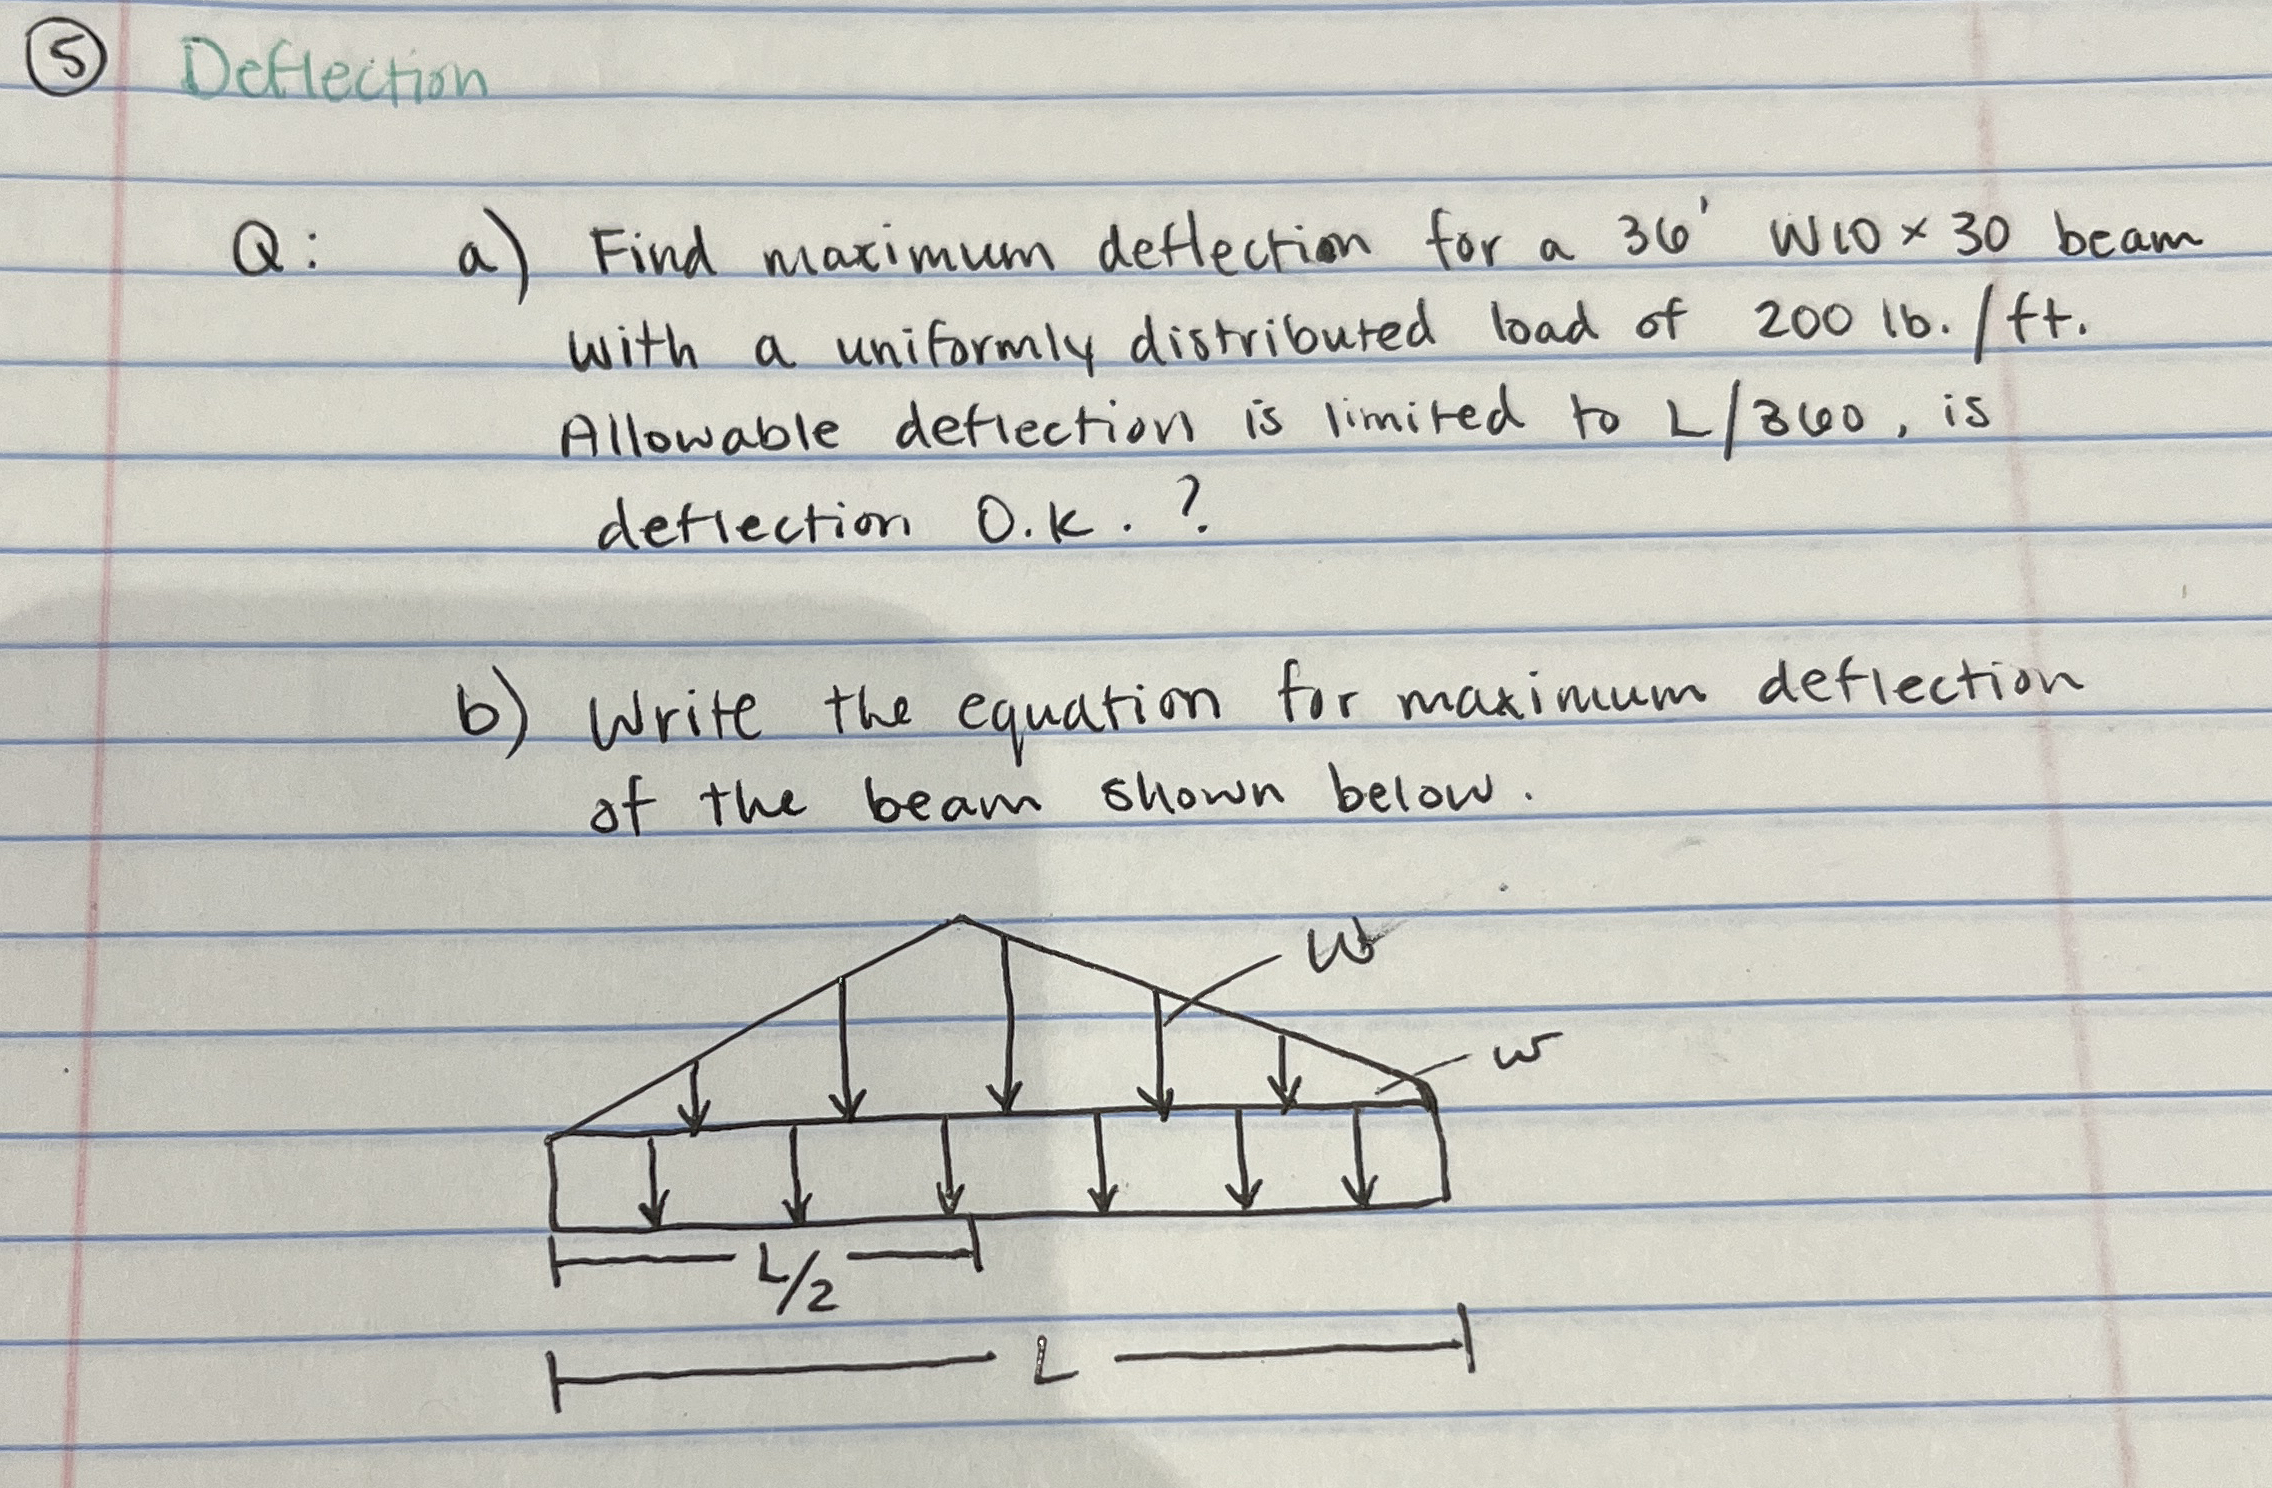 5 Deflection
Q: a) Find maximum deflection for a 36' W10 × 30 beam
with a uniformly distributed load of 200 lb./ft.
Allowable deflection is limited to L/360, is
deflection O.K.?
b) Write the equation for maximum deflection
of the beam shown below.
W
w
L/2
L